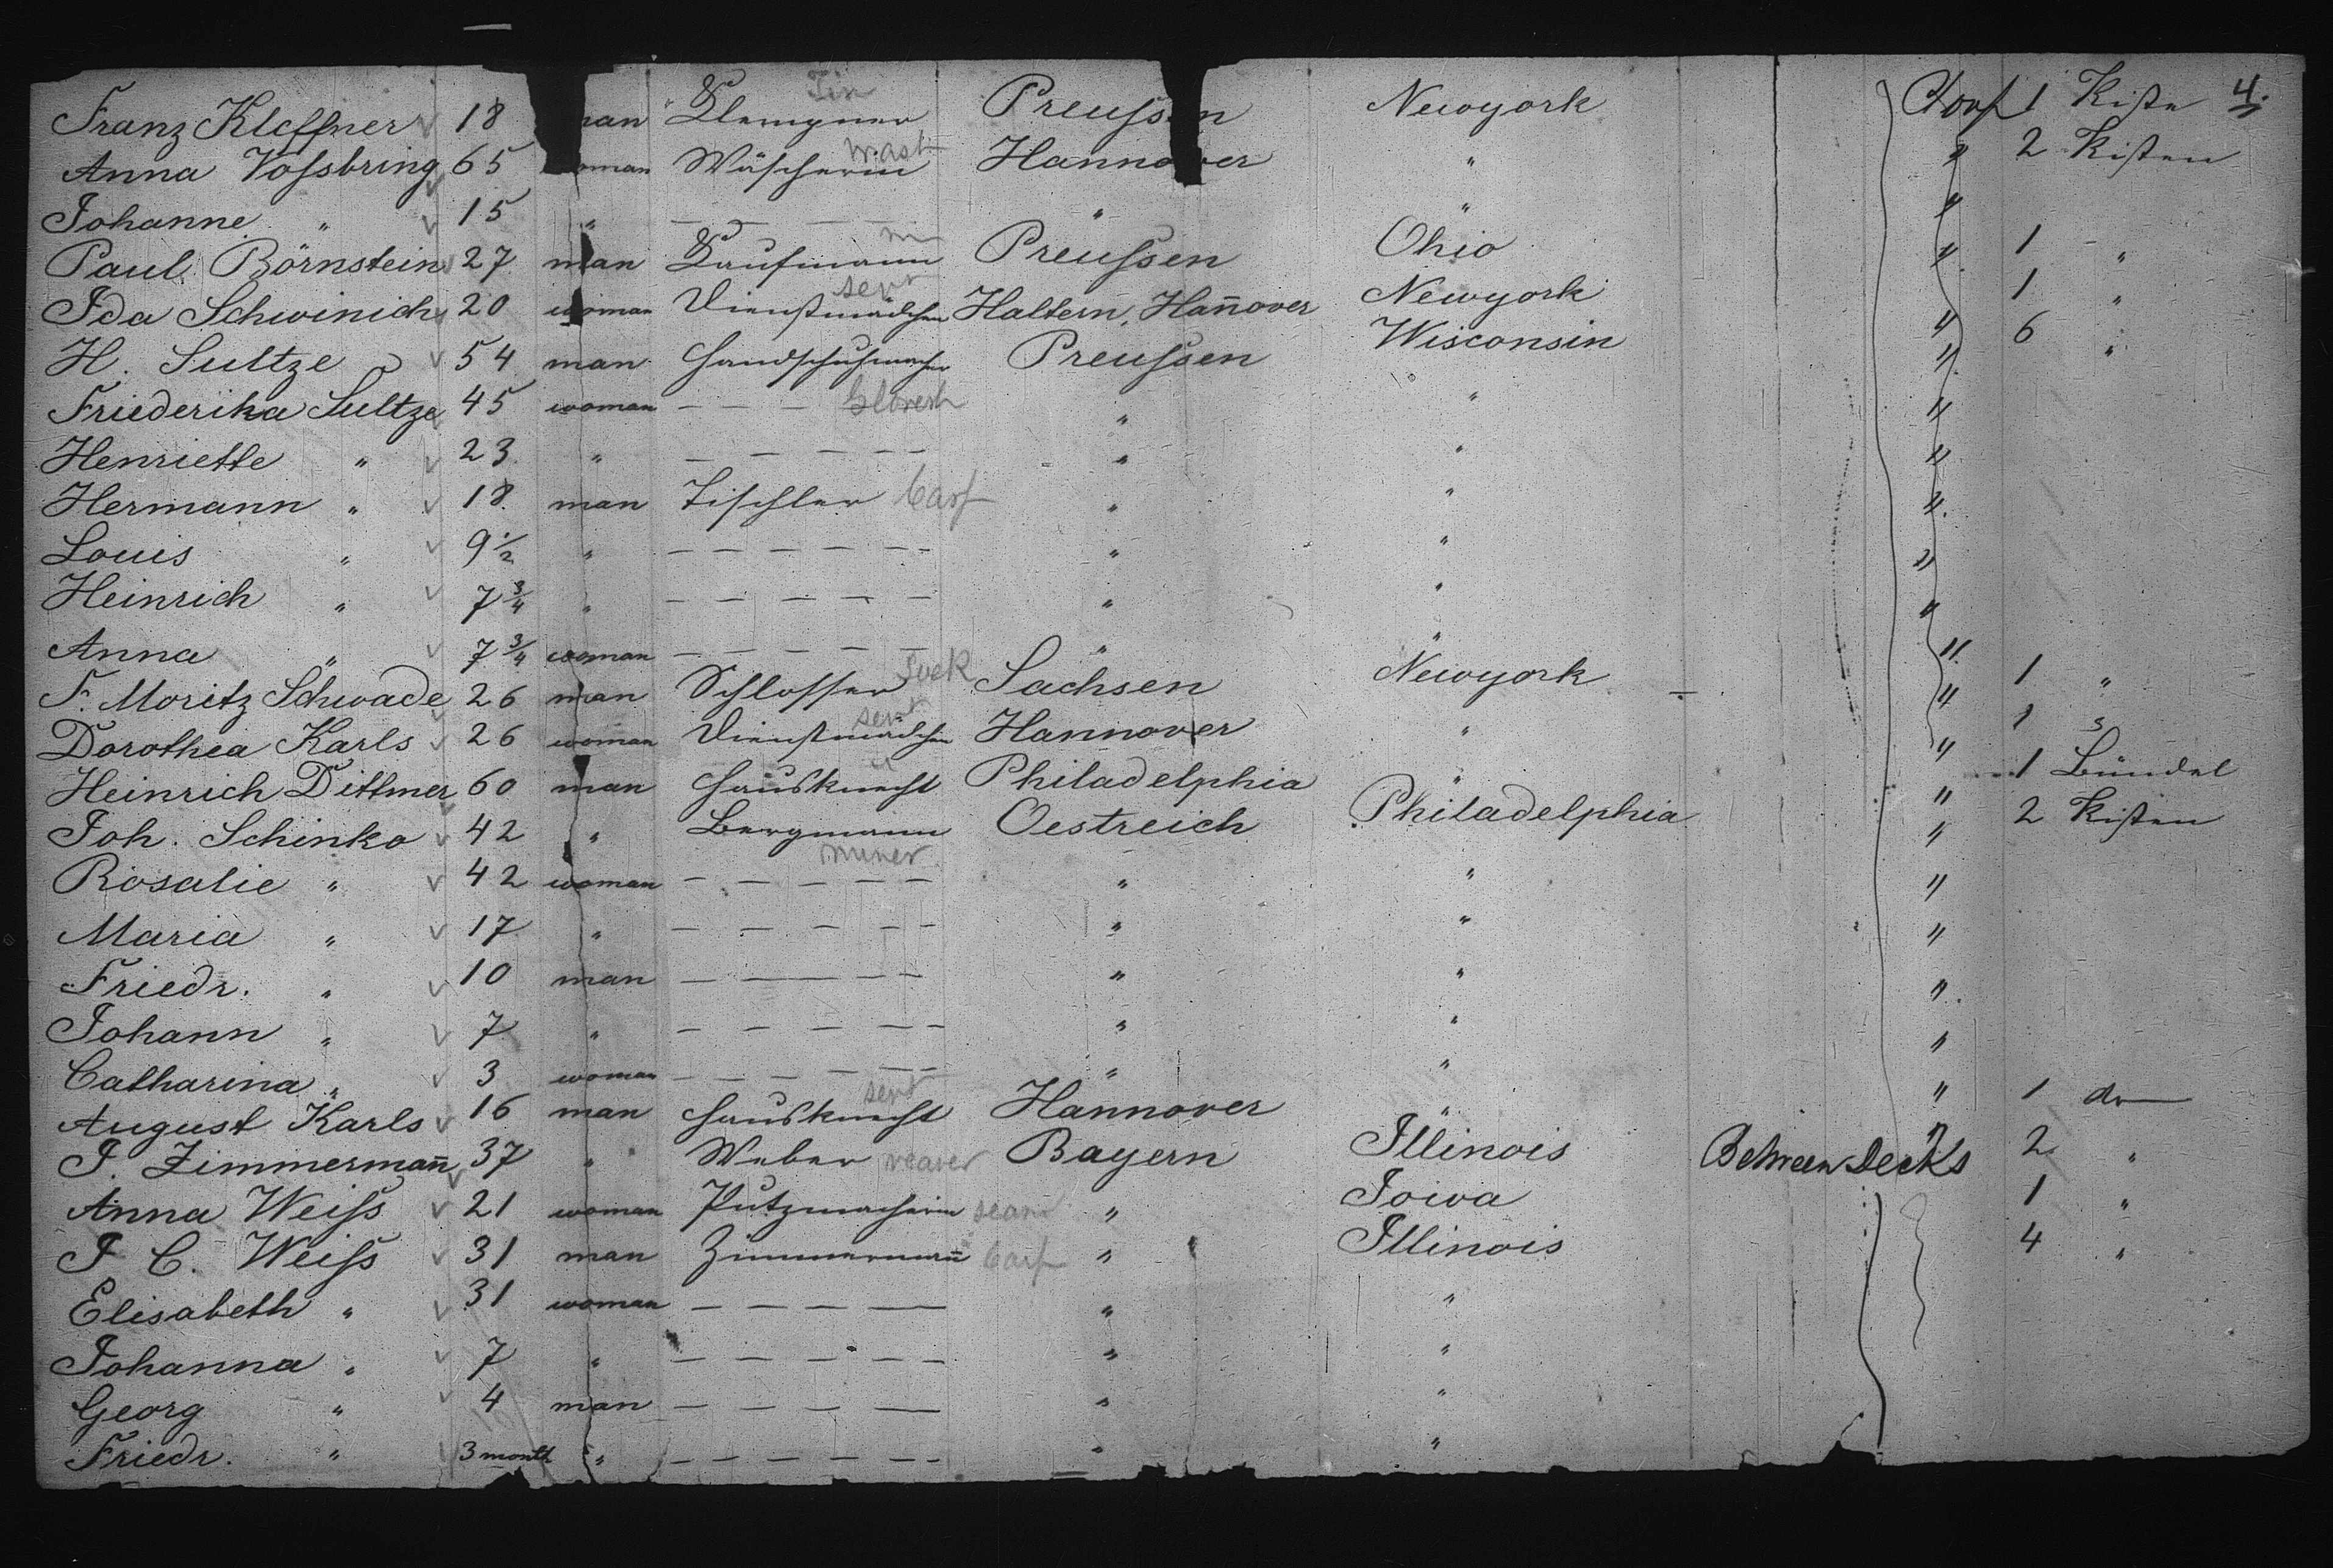 Franz Kleffner 18 man Klempner Tin Preussen Newyork 1 Kiste 4.
Anna Vossbring 65 woman Wäscherin Wash Hannover " " 2 Kisten
Johanne " 15 " — — — — " " "
Paul Börnstein 27 man Kaufmann m Preussen Ohio " 1 "
Ida Schwinich 20 woman Dienstmädchen servt Haltern, Han̄over Newyork " 1 "
H. Sultze 54 man Handschuhmacher Preussen Wisconsin " 6 "
Friederika Sultze 45 woman — — — " " "
Henriette " 23 " — — — — — " " "
Hermann " 18 man Tischler Carp " " "
Louis " 9 1/2 " — — — — — — " " "
Heinrich " 7 3/4 " — — — — — " " "
Anna " 7 3/4 woman — — — — — " " "
F. Moritz Schwade 26 man Schlosser Lock Sachsen Newyork " 1 "
Dorothea Karls 26 woman Dienstmädchen servt Hannover " " 1 "
Heinrich Dittmer 60 man Hausknecht " Philadelphia " " 1 Bündel
Joh. Schinko 42 " Bergmann miner Oestreich Philadelphia " 2 Kisten
Rosalie " 42 woman — — — — — " " "
Maria " 17 " — — — — — — " " "
Friedr. " 10 man — — — — " " "
Johann " 7 " — — — — — — " " "
Catharina " 3 woman — — — — — — " " "
August Karls 16 man Hausknecht servt Hannover " " 1 do
J. Zimmerman̄ 37 " Weber weaver Bayern Illinois Between Decks 2 "
Anna Weiss 21 woman Putzmacherin seam " Iowa 1 "
J C. Weiss 31 man Zimmerman̄ Carp " Illinois 4 "
Elisabeth " 31 woman — — — — " "
Johanna " 7 " — — — — — " "
Georg " 4 man — — — — " "
Friedr. " 3 month " — — — — — — " "